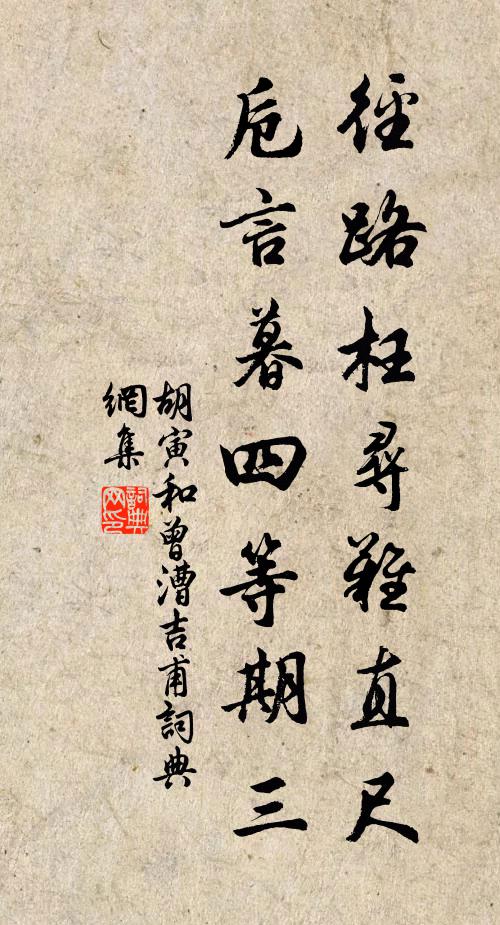 徑路枉尋難直尺
卮言暮四等期三
胡寅和曾漕吉甫詞典
網集
詞典
網印